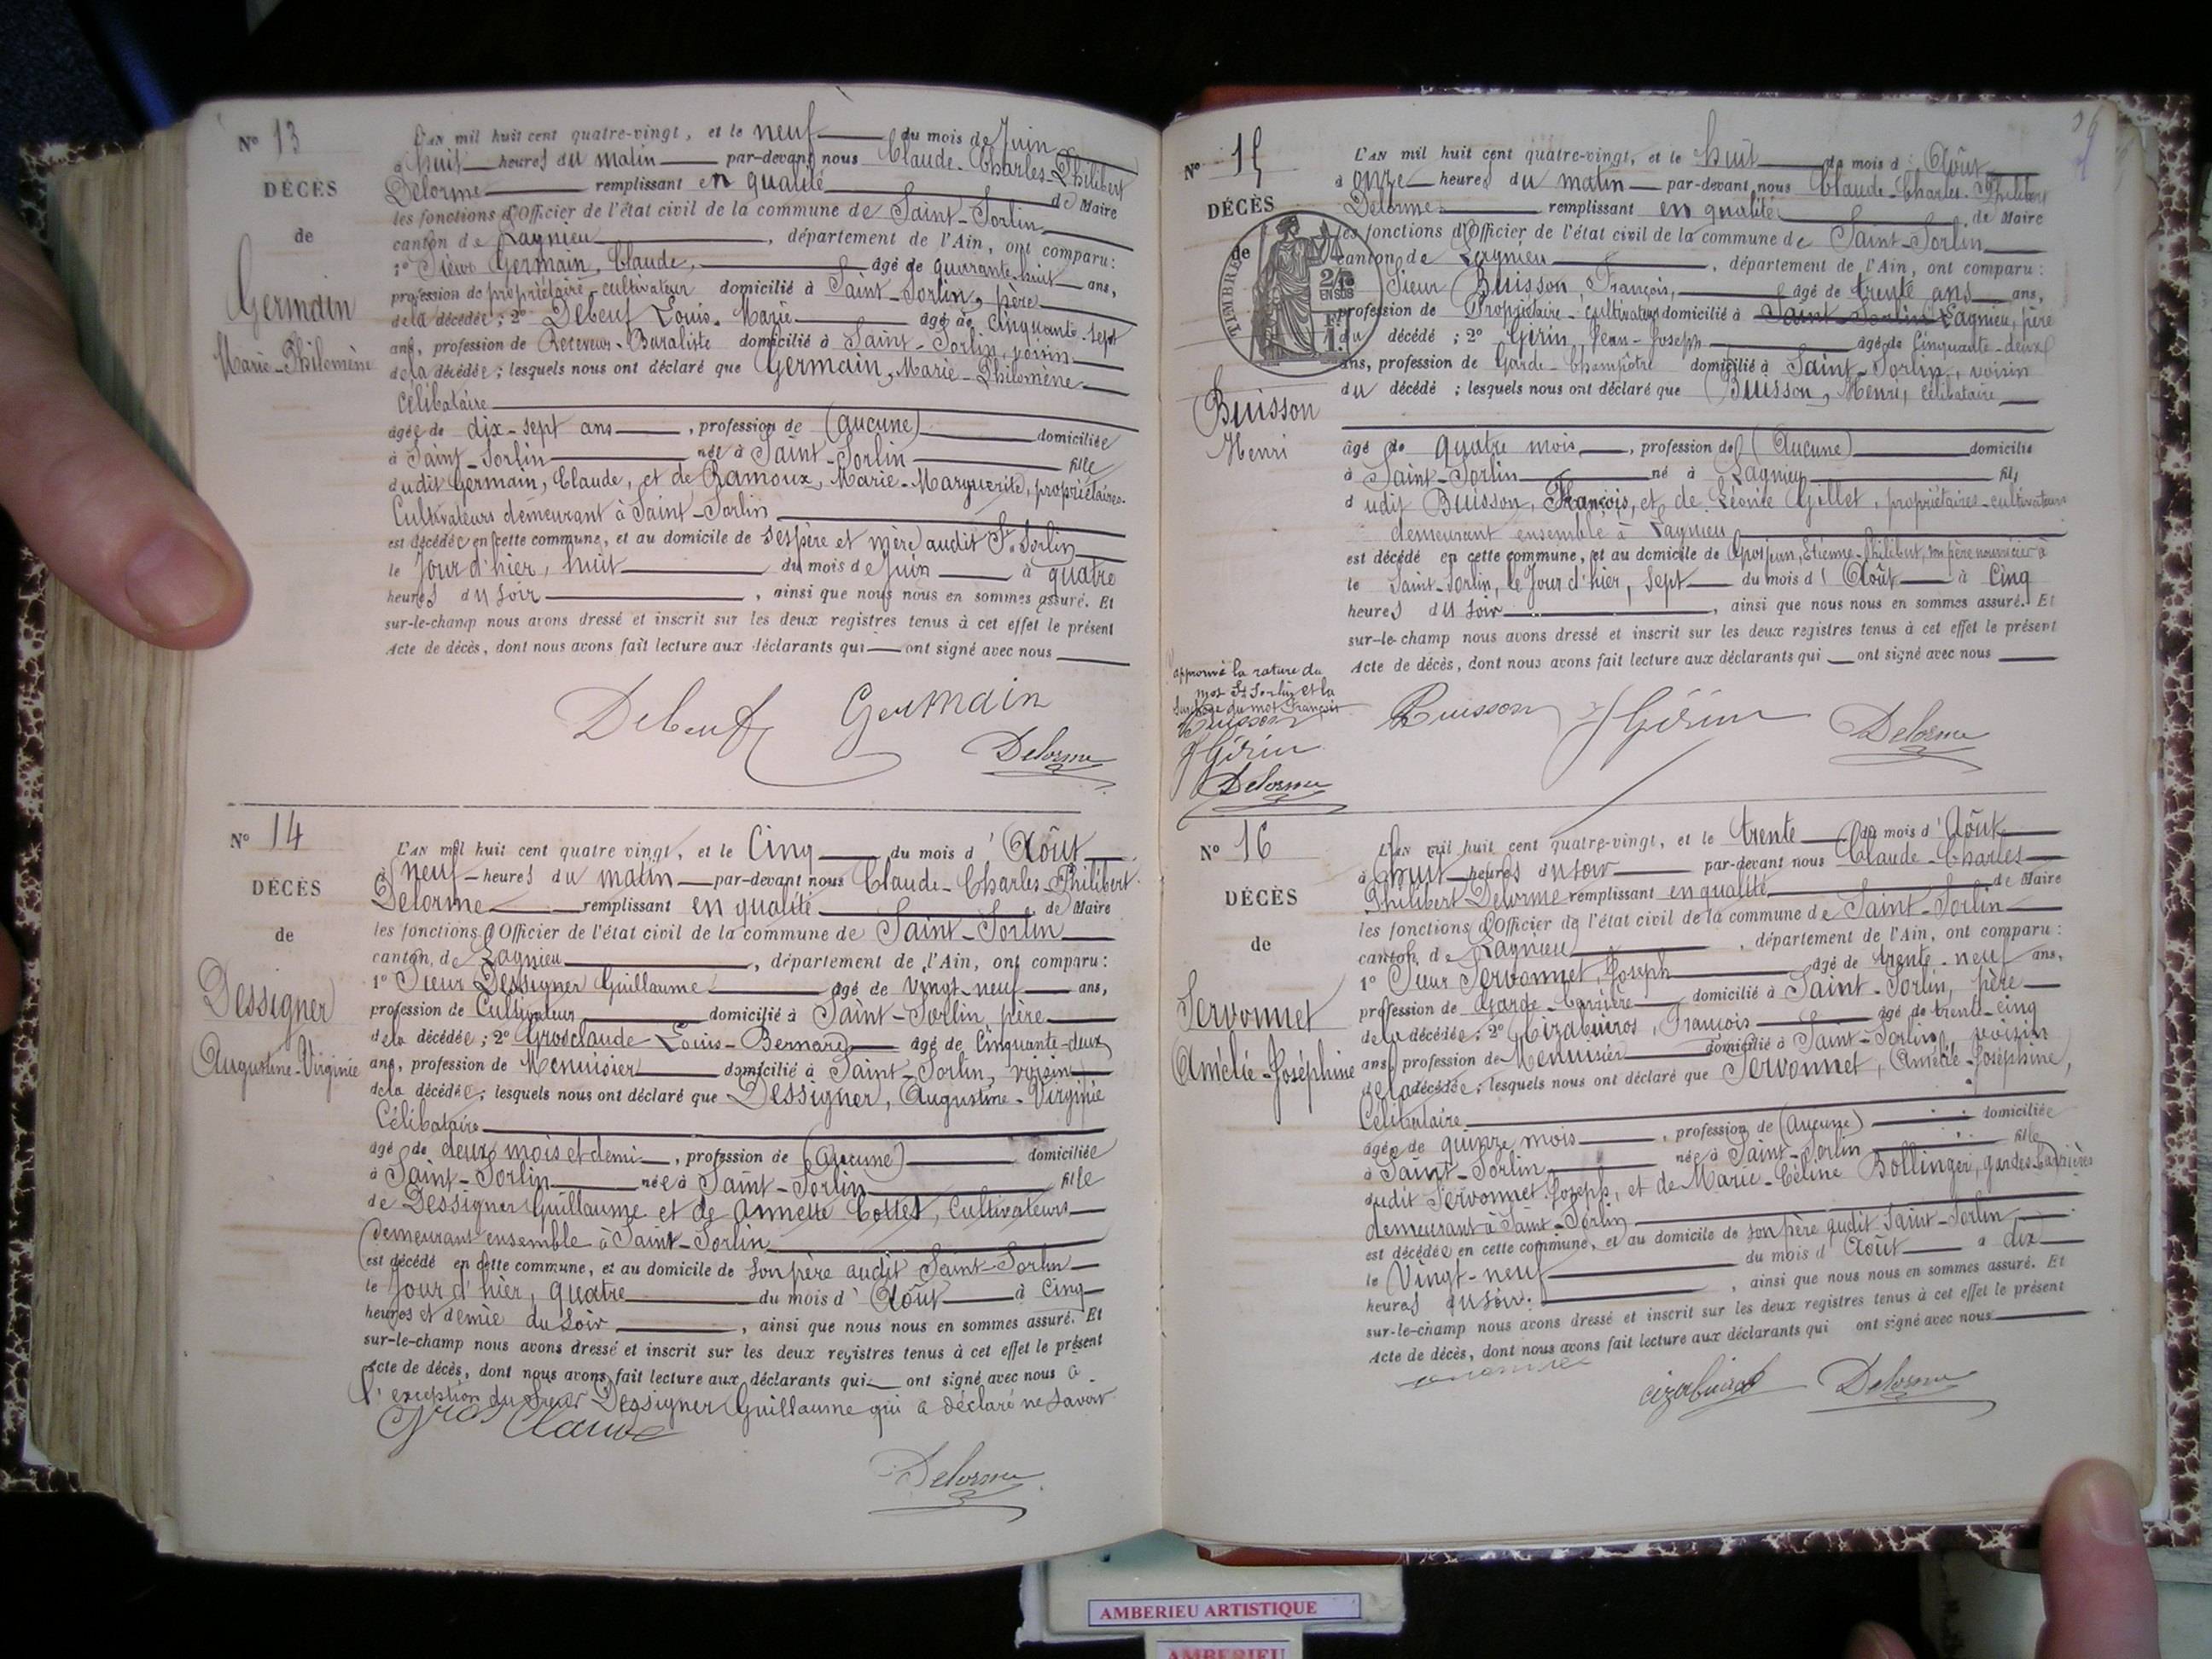 N° 13
DÉCÈS
de
Germain
Marie-Philomène
L'AN mil huit cent quatre-vingt, et le neuf du mois de Juin
à huit heures du matin par-devant nous Claude-Charles-Philibert
Delorme remplissant en qualité de Maire
les fonctions d'Officier de l'état civil de la commune de Saint-Sorlin
canton de Lagnieu, département de l'Ain, ont comparu:
1° Sieur Germain, Claude, âgé de quarante-huit ans,
profession de propriétaire-cultivateur domicilié à Saint-Sorlin, père
de la décédée; 2° Debeuf Louis-Marie âgé de Cinquante-sept
ans, profession de Receveur-Buraliste domicilié à Saint-Sorlin, voisin
de la décédée; lesquels nous ont déclaré que Germain, Marie-Philomène
Célibataire
âgée de dix-sept ans, profession de (aucune) domiciliée
à Saint-Sorlin née à Saint-Sorlin fille
dudit Germain, Claude, et de Ramoux, Marie-Marguerite, propriétaires-
Cultivateurs demeurant à Saint-Sorlin
est décédée en cette commune, et au domicile de ses père et mère audit St Sorlin
le Jour d'hier, huit du mois de Juin à quatre
heures du soir, ainsi que nous nous en sommes assuré. Et
sur-le-champ nous avons dressé et inscrit sur les deux registres tenus à cet effet le présent
Acte de décès, dont nous avons fait lecture aux déclarants qui ont signé avec nous
Debeuf Germain
Delorme
N° 14
DÉCÈS
de
Dessigner
Augustine-Virginie
L'AN mil huit cent quatre vingt, et le Cinq du mois d'Août
à neuf heures du matin par-devant nous Claude-Charles-Philibert
Delorme remplissant en qualité de Maire
les fonctions d'Officier de l'état civil de la commune de Saint-Sorlin
canton de Lagnieu, département de l'Ain, ont comparu:
1° Sieur Dessigner Guillaume âgé de Vingt-neuf ans,
profession de Cultivateur domicilié à Saint-Sorlin, père
de la décédée; 2° Grosclaude Louis-Bernard âgé de Cinquante-deux
ans, profession de Menuisier domicilié à Saint-Sorlin, voisin
de la décédée; lesquels nous ont déclaré que Dessigner, Augustine-Virginie
Célibataire
âgé de deux mois et demi, profession de (Aucune) domiciliée
à Saint-Sorlin née à Saint-Sorlin fille
de Dessigner Guillaume et de Annette Cottet, Cultivateurs
demeurant ensemble à Saint-Sorlin
est décédé en cette commune, et au domicile de son père audit Saint-Sorlin
le Jour d'hier, quatre du mois d'Août à Cinq
heures et demie du Soir, ainsi que nous nous en sommes assuré. Et
sur-le-champ nous avons dressé et inscrit sur les deux registres tenus à cet effet le présent
Acte de décès, dont nous avons fait lecture aux déclarants qui ont signé avec nous à
l'exception du Sieur Dessigner Guillaume qui a déclaré ne savoir
Gros Claude
Delorme
N° 15
DÉCÈS
de
TIMBRE
2/10 EN SUS
1 F.
Buisson
Henri
L'AN mil huit cent quatre-vingt, et le huit du mois d'Août
à onze heures du matin par-devant nous Claude-Charles-Philibert
Delorme remplissant en qualité de Maire
les fonctions d'Officier de l'état civil de la commune de Saint-Sorlin
canton de Lagnieu, département de l'Ain, ont comparu:
Sieur Buisson François, âgé de trente ans ans,
profession de Propriétaire-Cultivateur domicilié à Saint-Sorlin Lagnieu, père
du décédé; 2° Girin, Jean-Joseph âgé de Cinquante-deux
ans, profession de Garde-Champêtre domicilié à Saint-Sorlin, voisin
du décédé; lesquels nous ont déclaré que Buisson, Henri, Célibataire
âgé de quatre mois, profession de (Aucune) domicilié
à Saint-Sorlin né à Lagnieu fils
dudit Buisson, François, et de Léonile Gillet, propriétaires-cultivateurs
demeurant ensemble à Lagnieu
est décédé en cette commune, et au domicile de Etienne-Philibert, son père nourricier à
le Saint-Sorlin, le Jour d'hier, Sept du mois d'Août à Cinq
heures du Soir, ainsi que nous nous en sommes assuré. Et
sur-le-champ nous avons dressé et inscrit sur les deux registres tenus à cet effet le présent
Acte de décès, dont nous avons fait lecture aux déclarants qui ont signé avec nous
approuvé la rature du
mot St Sorlin et la
du mot François
Buisson
J Girin
Delorme
Buisson J Girin Delorme
N° 16
DÉCÈS
de
Servonnet
Amélie-Joséphine
L'AN mil huit cent quatre-vingt, et le trente du mois d'Août
à huit heures du soir par-devant nous Claude-Charles
Philibert Delorme remplissant en qualité de Maire
les fonctions d'Officier de l'état civil de la commune de Saint-Sorlin
canton de Lagnieu, département de l'Ain, ont comparu:
1° Sieur Servonnet Joseph âgé de trente-neuf ans,
profession de Garde-Barrière domicilié à Saint-Sorlin, père
de la décédée; 2° Cizabuiros, François âgé de trente-cinq
ans, profession de Menuisier domicilié à Saint-Sorlin, voisin
de la décédée; lesquels nous ont déclaré que Servonnet, Amélie-Joséphine,
Célibataire
âgée de quinze mois, profession de (Aucune) domiciliée
à Saint-Sorlin née à Saint-Sorlin fille
dudit Servonnet Joseph, et de Marie-Céline Bollinger, gardes-barrières
demeurant à Saint-Sorlin
est décédée en cette commune, et au domicile de son père audit Saint-Sorlin
le Vingt-neuf du mois d'Août à dix
heures du soir, ainsi que nous nous en sommes assuré. Et
sur-le-champ nous avons dressé et inscrit sur les deux registres tenus à cet effet le présent
Acte de décès, dont nous avons fait lecture aux déclarants qui ont signé avec nous
Delorme
AMBERIEU ARTISTIQUE
AMBERIEU